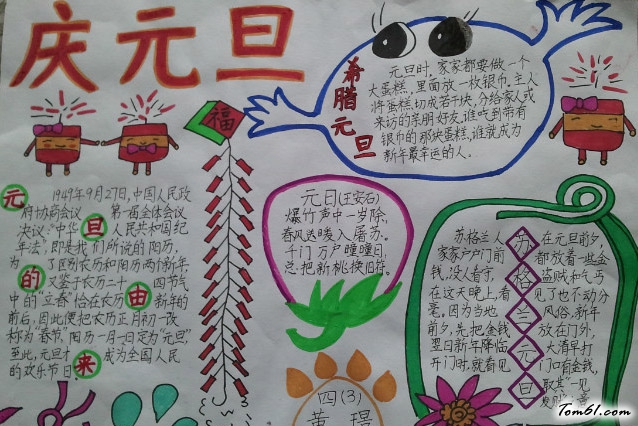 庆元旦
福
希腊元旦
元旦时,家家都要做一个
大蛋糕,里面放一枚银巾,主人
将蛋糕切成若干块,分给家人或
来访的亲朋好友,谁吃到带有
银巾的那块蛋糕,谁就成为
新年最幸运的人.
元旦的由来
1949年9月27日,中国人民政
府协商会议 第一届全体会议
决议:"中华 人民共和国纪
年法",即是我们所说的阳历,
为了区别农历和阳历两个新年
又鉴于农历二十四节气
中的"立春"恰在农历 新年的
前后,因此便把农历正月初一改
称为"春节",阳历一月一日定为"元旦",
至此,元旦才 成为全国人民
的欢乐节日.
元日(王安石)
爆竹声中一岁除,
春风送暖入屠苏.
千门万户曈曈日,
总把新桃换旧符.
苏格兰元旦
苏格兰人
家家户户门前
钱,没人看守,
在这天晚上,看
毫.因为当地
前夕,先把金钱
翌日新年降临
开门时,就看见
在元旦前夕,
都放着一些金
盗贼和乞丐
见了也不动分
风俗,新年
放在门外,
大清早打
门口有金钱,
取其"一见
四(3)
黄
Tom61.com